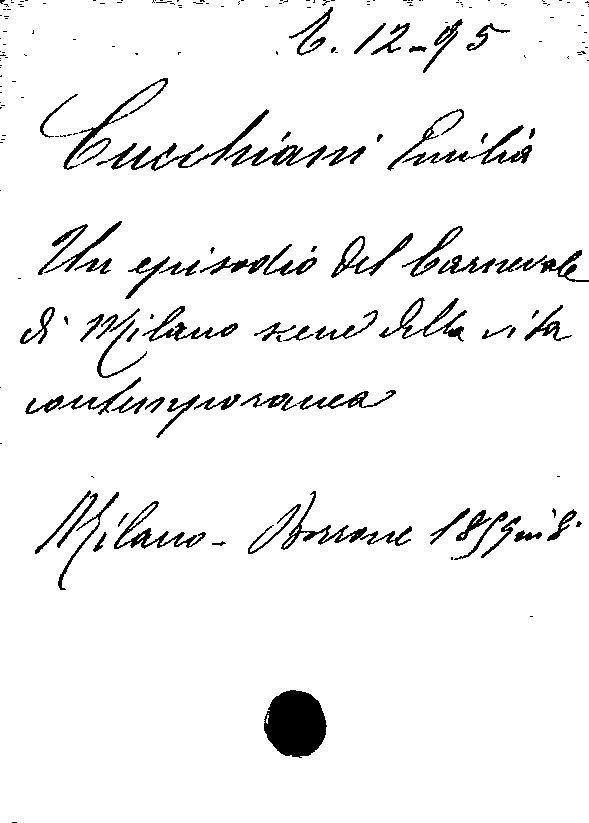 C. 12-95
Cucchiani Emilia
Un episodio del Carnevale
di Milano scene della vita
contemporanea
Milano - Borrone 1859 in 8.